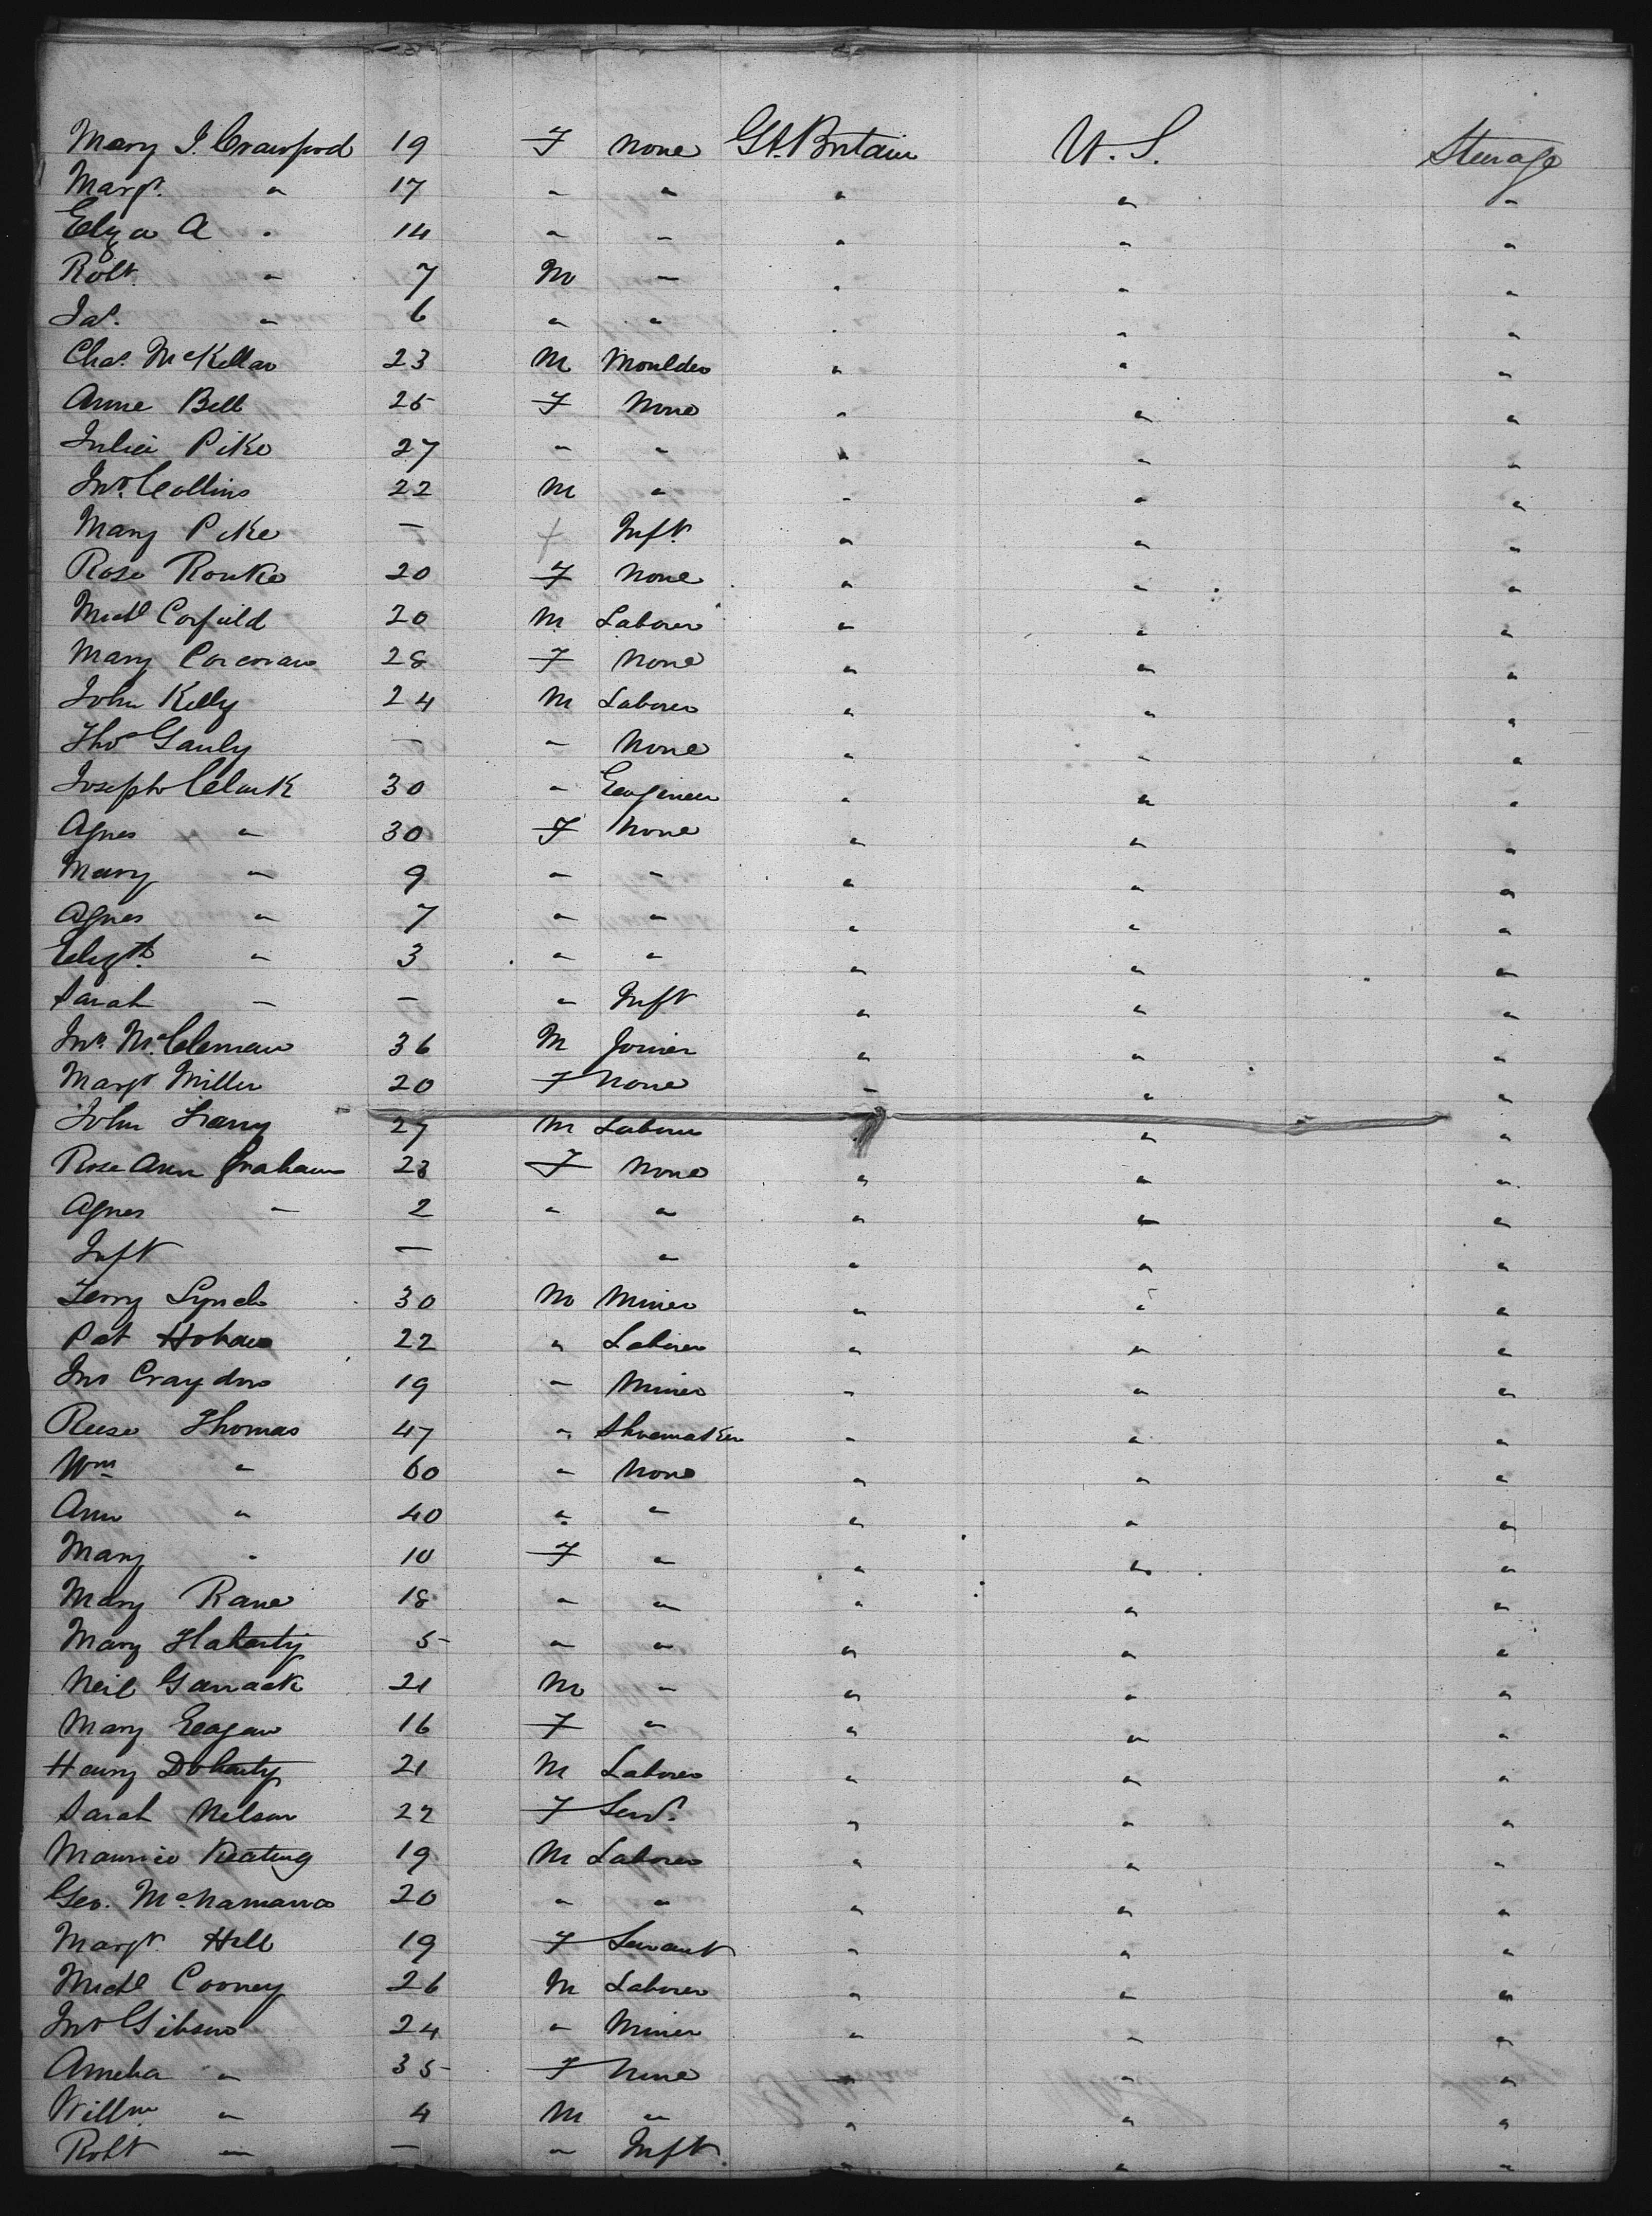 Mary J. Crawford 19 F None Gt. Britain U.S. Steerage
Margt. " 17 " " " " "
Eliza A " 14 " " " " "
Robt. " 7 M " " " "
Jas. " 6 " " " " "
Chas. McKellar 23 M Moulder " " "
Anne Bell 25 F None " " "
Julia Pike 27 " " " " "
Jno. Collins 22 M " " " "
Mary Pike — f Inft. " " "
Rose Rourke 20 F None " " "
Michl Corfield 20 M Laborer " " "
Mary Corcoran 28 F None " " "
John Kelly 24 M Laborer " " "
Thos Gauly — " None " " "
Joseph Clark 30 " Engineer " " "
Agnes " 30 F None " " "
Mary " 9 " " " " "
Agnes " 7 " " " " "
Elizth. " 3 " " " " "
Sarah " — " Inft " " "
Jno. McClenan 36 M Joiner " " "
Margt Miller 20 F None " " "
John 27 M Laborer " " "
Rose Ann Graham 23 F None " " "
Agnes " 2 " " " " "
Inft — " " " "
Jerry Lynch 30 M Miner " " "
Pat Hoban 22 " Laborer " " "
Jno Craydon 19 " Miner " " "
Reese Thomas 47 " Shoemaker " " "
Wm " 60 " None " " "
Ann " 40 " " " " "
Mary " 10 F " " " "
Mary Rane 18 " " " " "
Mary Flaherty 5 " " " " "
Neil 21 M " " " "
Mary Eagan 16 F " " " "
Henry Doherty 21 M Laborer " " "
Sarah Nelson 22 F Servt. " " "
Maurice Keating 19 M Laborer " " "
Geo. McNamarra 20 " " " " "
Margt. Hill 19 F Servant " " "
Michl Cooney 26 M Laborer " " "
Jno Gibson 24 " Miner " " "
Amelia " 35 F None " " "
Willm " 4 M " " " "
Robt " — " Inft " " "